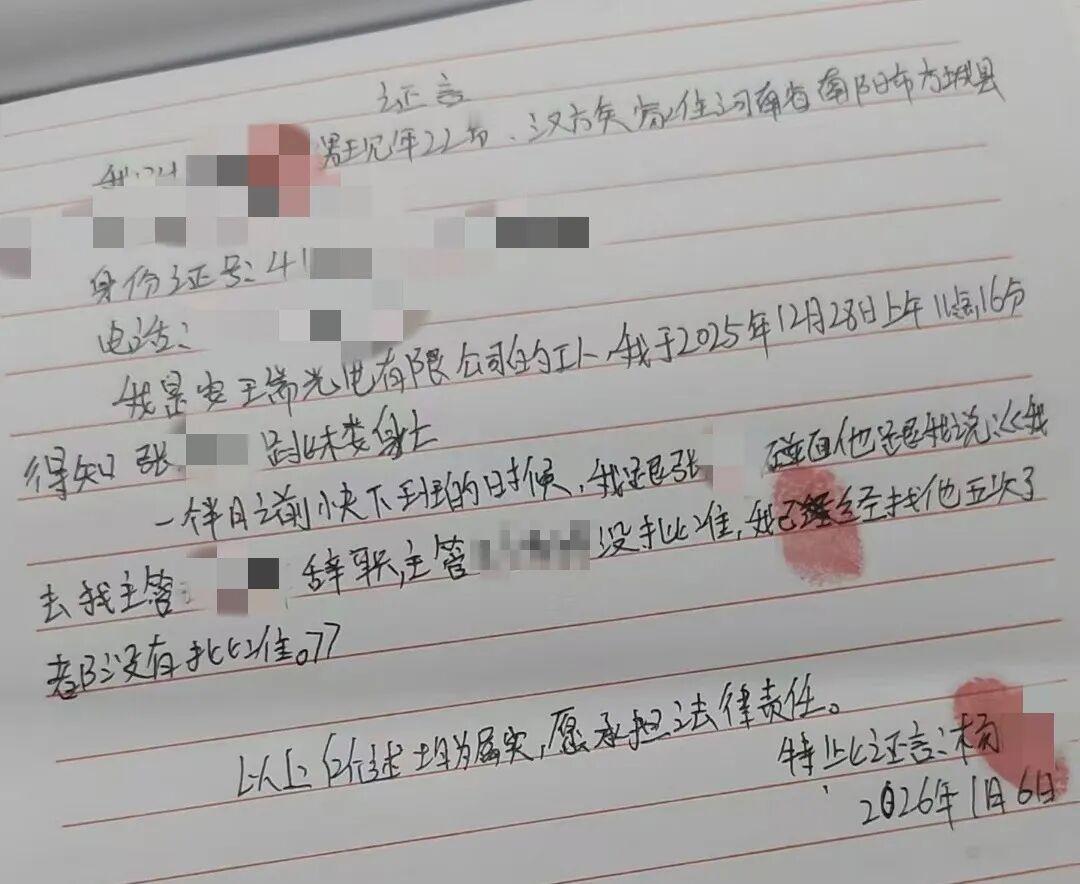 证言
我叫 男现年22岁、汉族家住河南省南阳市方城县
身份证号:41
电话:
我是安 瑞光电有限公司的工人、我于2025年12月28日上午11点16分
得知张 跳楼 身亡
一个半月之前小夹下班的时候,我跟张 碰面他跟我说:《我
去找主管 辞职,主管 没批准,我已经找他五次了
都没有批准。》
以上 述均为属实,愿承担法律责任。
特此证言:杨
2026年1月6日